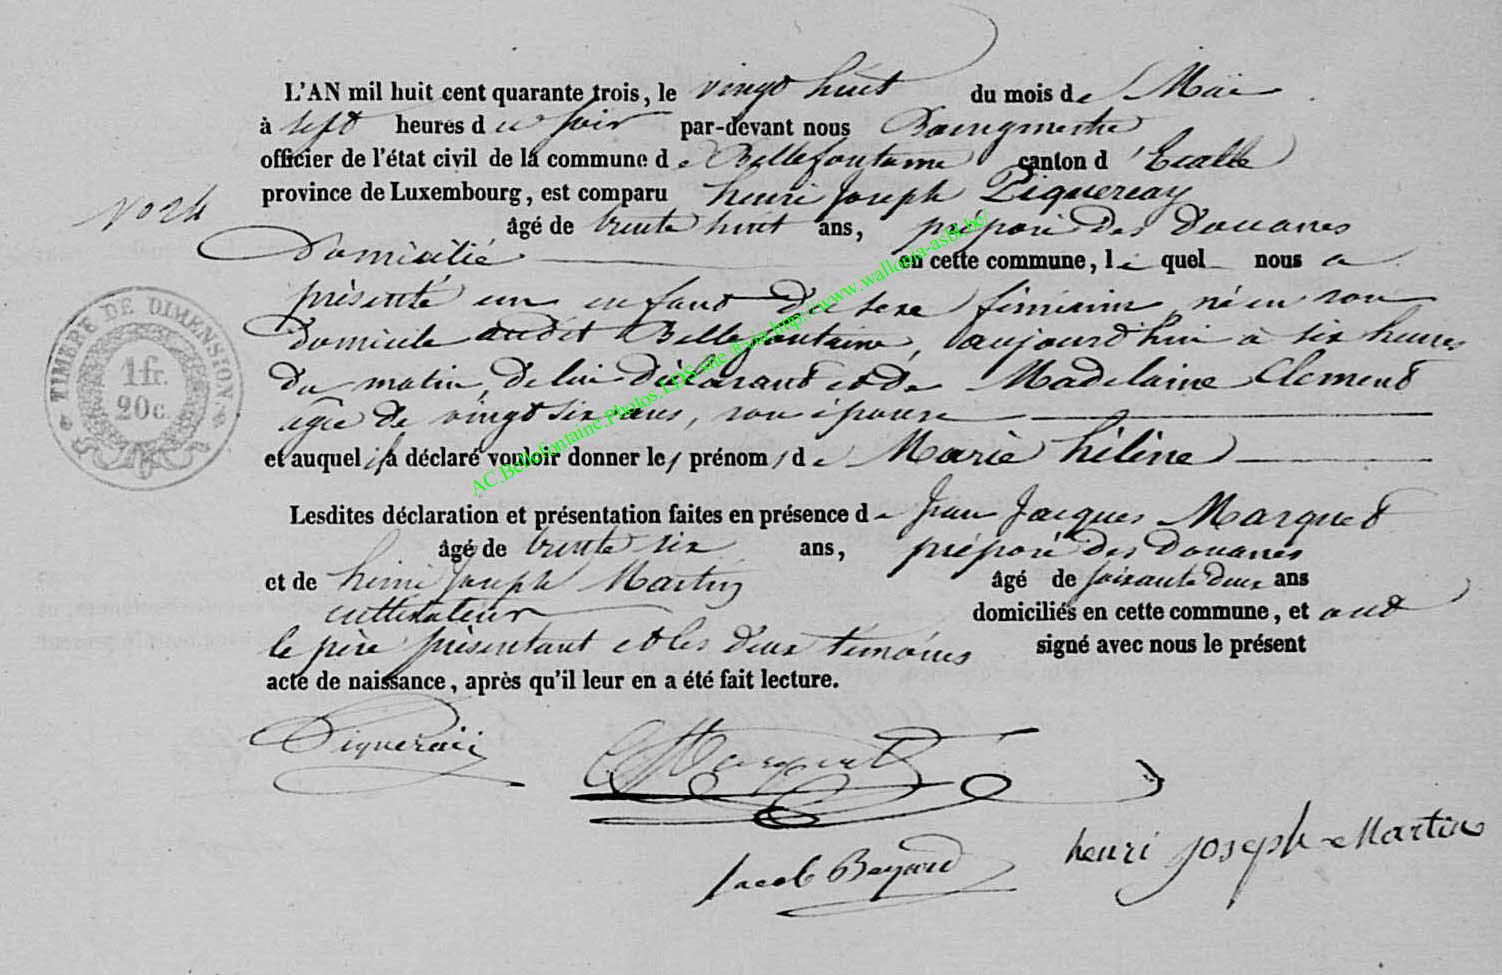 L'AN mil huit cent quarante trois, le vingt huit du mois de Mai
à sept heures du soir par-devant nous Bourgmestre
officier de l'état civil de la commune de Bellefontaine canton d'Etalle
province de Luxembourg, est comparu henri Joseph Piqueray
N° 24
âgé de trente huit ans, préposé des Douanes
Domicilié en cette commune, le quel nous a
présenté un enfant du sexe féminin, né en son
domicile audit Bellefontaine, aujourd'hui à six heures
du matin, de lui déclarant et de Madelaine Clement
agée de vingt six ans, son épouse
et auquel il a déclaré vouloir donner les prénoms de Marie héline
Lesdites déclaration et présentation faites en présence de Jean Jacques Marquet
âgé de trente six ans, préposé des Douanes
et de henri Joseph Martin âgé de soixante deux ans
cultivateur domiciliés en cette commune, et ont
le père présentant et les deux témoins signé avec nous le présent
acte de naissance, après qu'il leur en a été fait lecture.
TIMBRE DE DIMENSION
1 fr.
20 c.
AC.Bellefontaine.Photos.LDS site & via http://www.wallonia-asbl.be/
Piqueraii
Marquet
henri Joseph Martin
Jacob Bayard